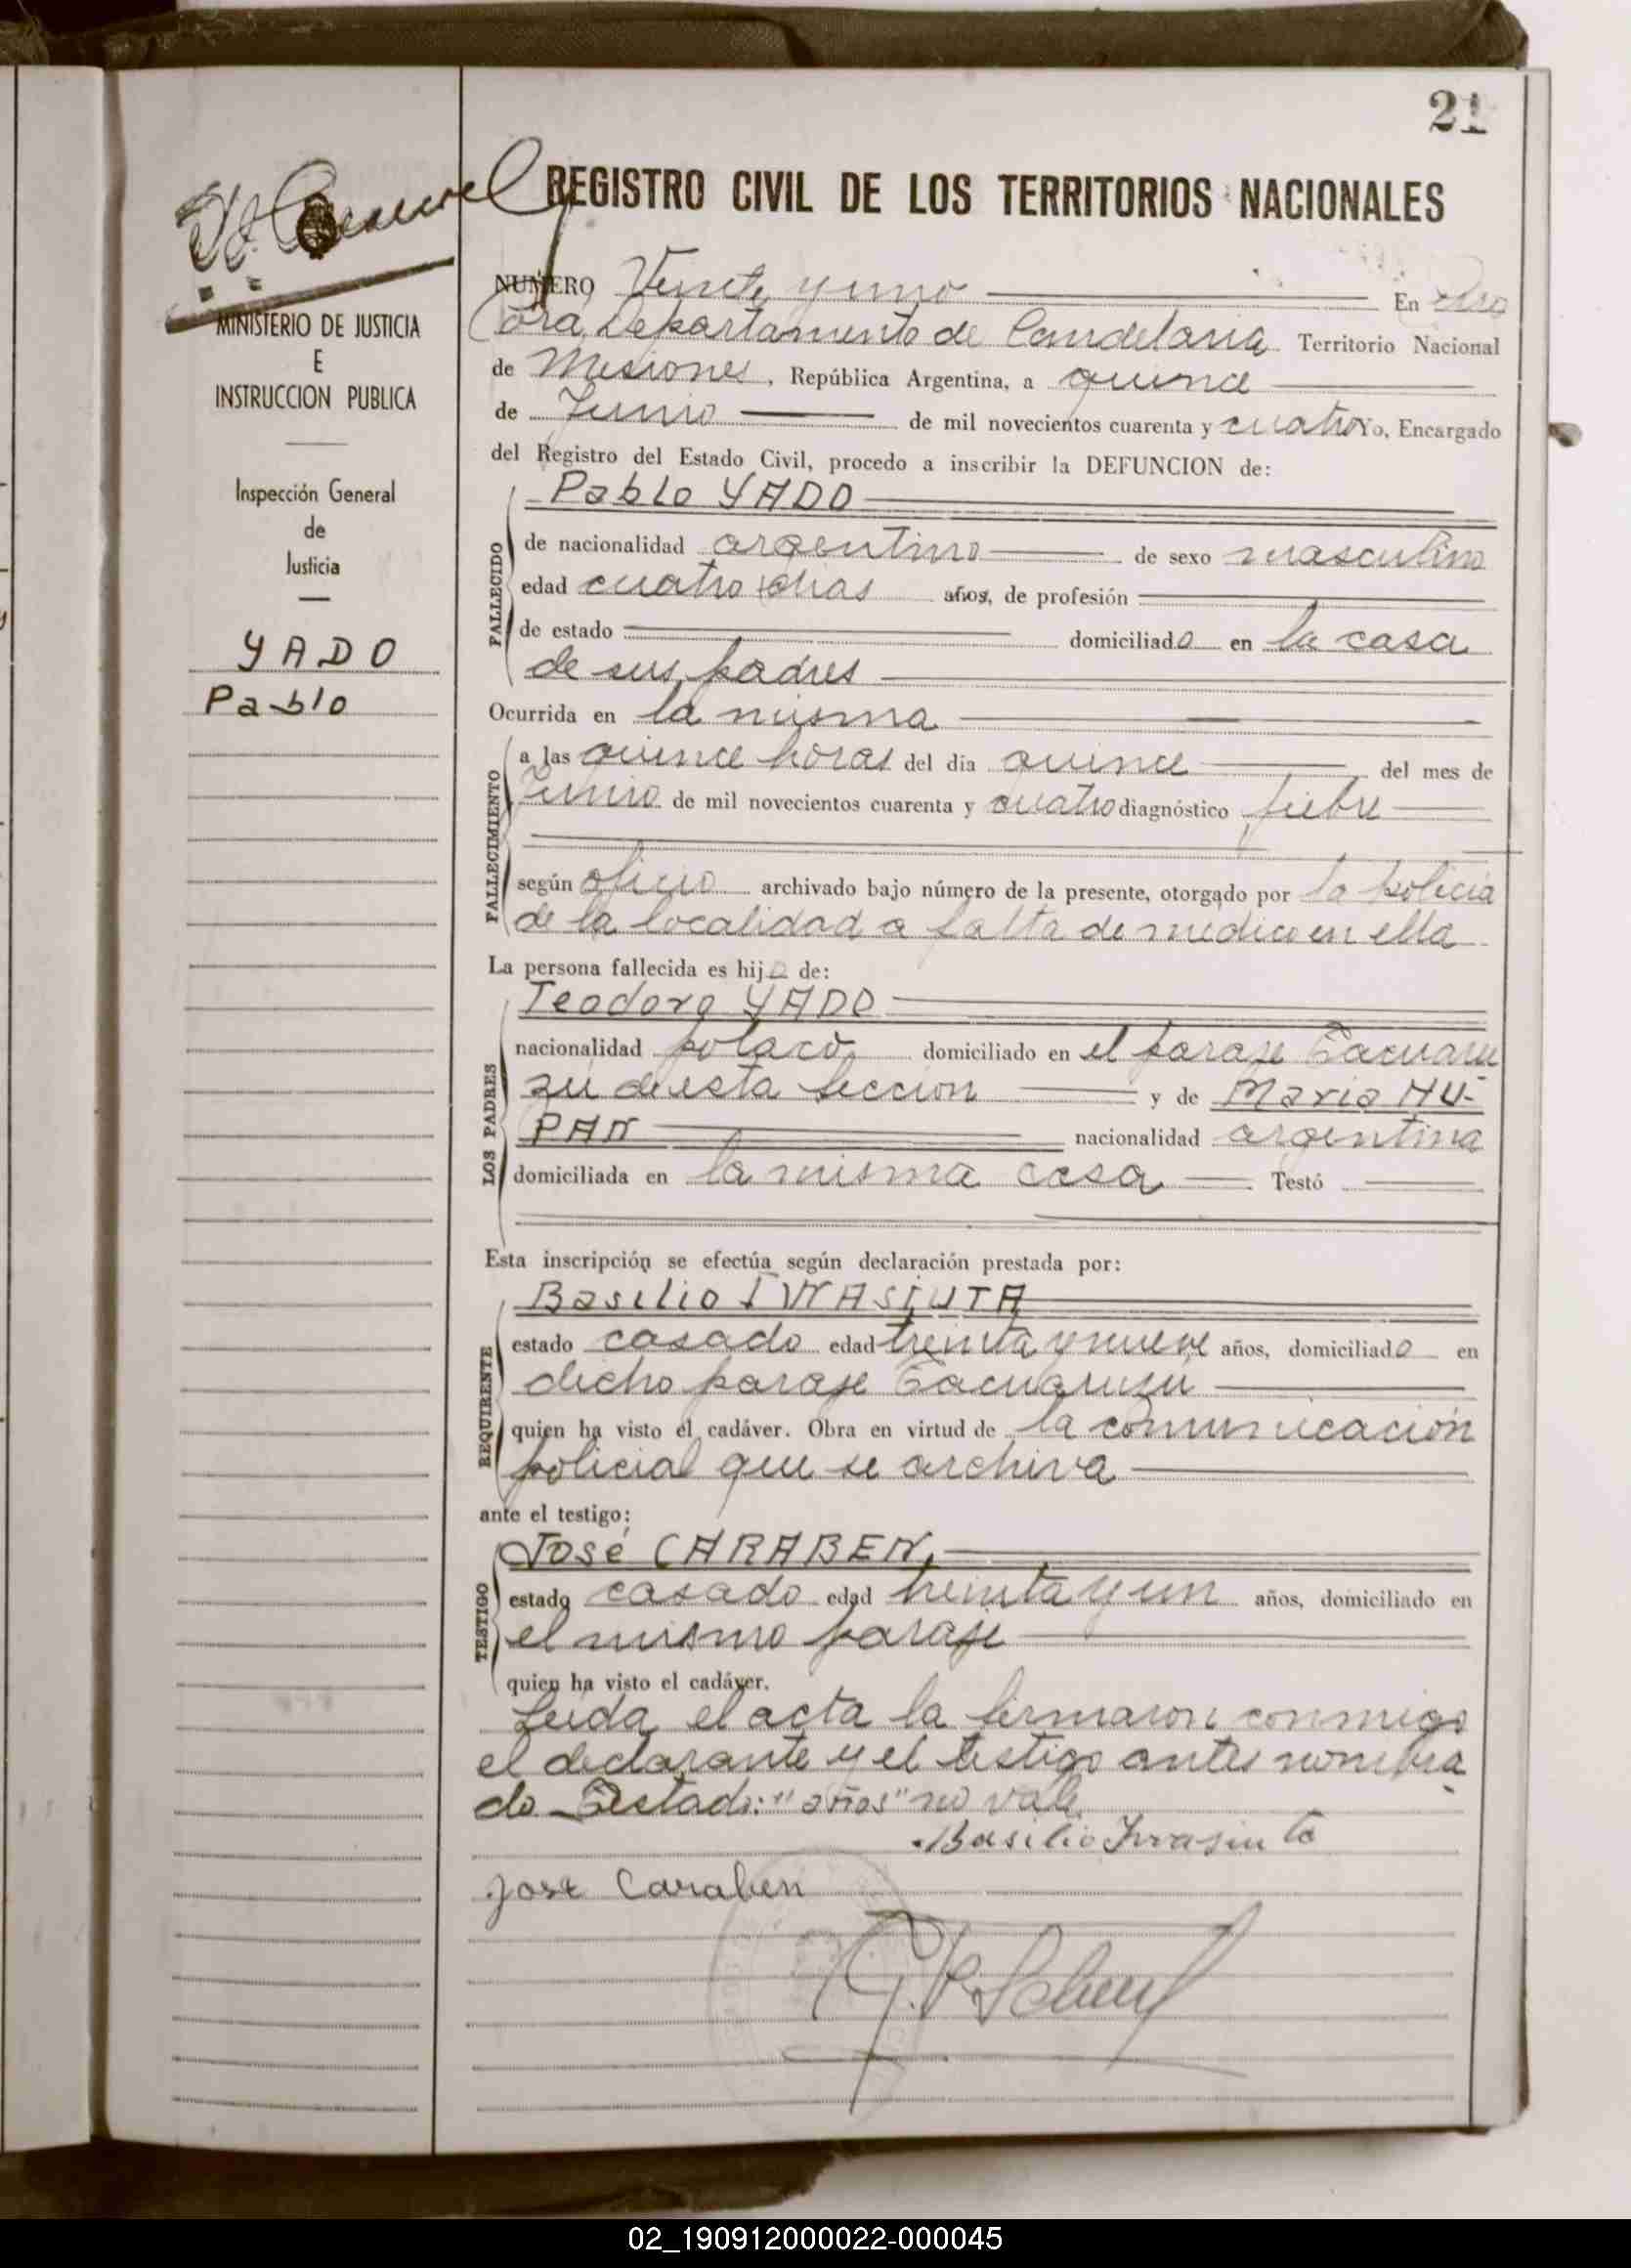 21
REGISTRO CIVIL DE LOS TERRITORIOS NACIONALES
MINISTERIO DE JUSTICIA
E
INSTRUCCION PUBLICA
Inspección General
de
Justicia
YADO
Pablo
NUMERO Veinte y uno En
Departamento de Candelaria Territorio Nacional
de Misiones, República Argentina, a quince
de Junio de mil novecientos cuarenta y cuatro Yo, Encargado
del Registro del Estado Civil, procedo a inscribir la DEFUNCION de:
Pablo YADO
FALLECIDO
de nacionalidad argentino de sexo masculino
edad cuatro dias años, de profesión
de estado domiciliado en la casa
de sus padres
Ocurrida en la misma
FALLECIMIENTO
a las quince horas del día quince del mes de
Junio de mil novecientos cuarenta y cuatro diagnóstico fiebre
según oficio archivado bajo número de la presente, otorgado por la policia
de la localidad a falta de medico en ella
La persona fallecida es hijo de:
LOS PADRES
Teodoro YADO
nacionalidad polaco, domiciliado en el paraje Tacuaru
zú de esta seccion y de Maria HU-
PAN nacionalidad argentina
domiciliada en la misma casa Testó
Esta inscripción se efectúa según declaración prestada por:
REQUIRENTE
Basilio IWASIUTA
estado casado edad treinta y nueve años, domiciliado en
dicho paraje Tacuaruzú
quien ha visto el cadáver. Obra en virtud de la comunicación
policial que se archiva
ante el testigo:
TESTIGO
José CARABEN,
estado casado edad treinta y un años, domiciliado en
el mismo paraje
quien ha visto el cadáver.
Leida el acta la firmaron conmigo
el declarante y el testigo antes nombra
do Testado: "años" no vale
Basilio Iwasiuta
Jose Caraben
02_190912000022-000045